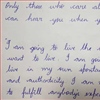 Only those who cares abo
can hear you when y
'I am going to live the l
want to live. I am goin
live on my own spontan
and authenticity. I am
to fulfill anybody's expect